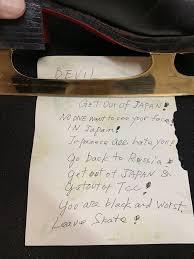 DEVIL
Get out of JAPAN!
NO ONE want to see your face
IN Japan!
Japanese all hate you!
Go back to Russia!
get out of JAPAN &
Get out of Tcc!
You are black and worst
Leave Skate!